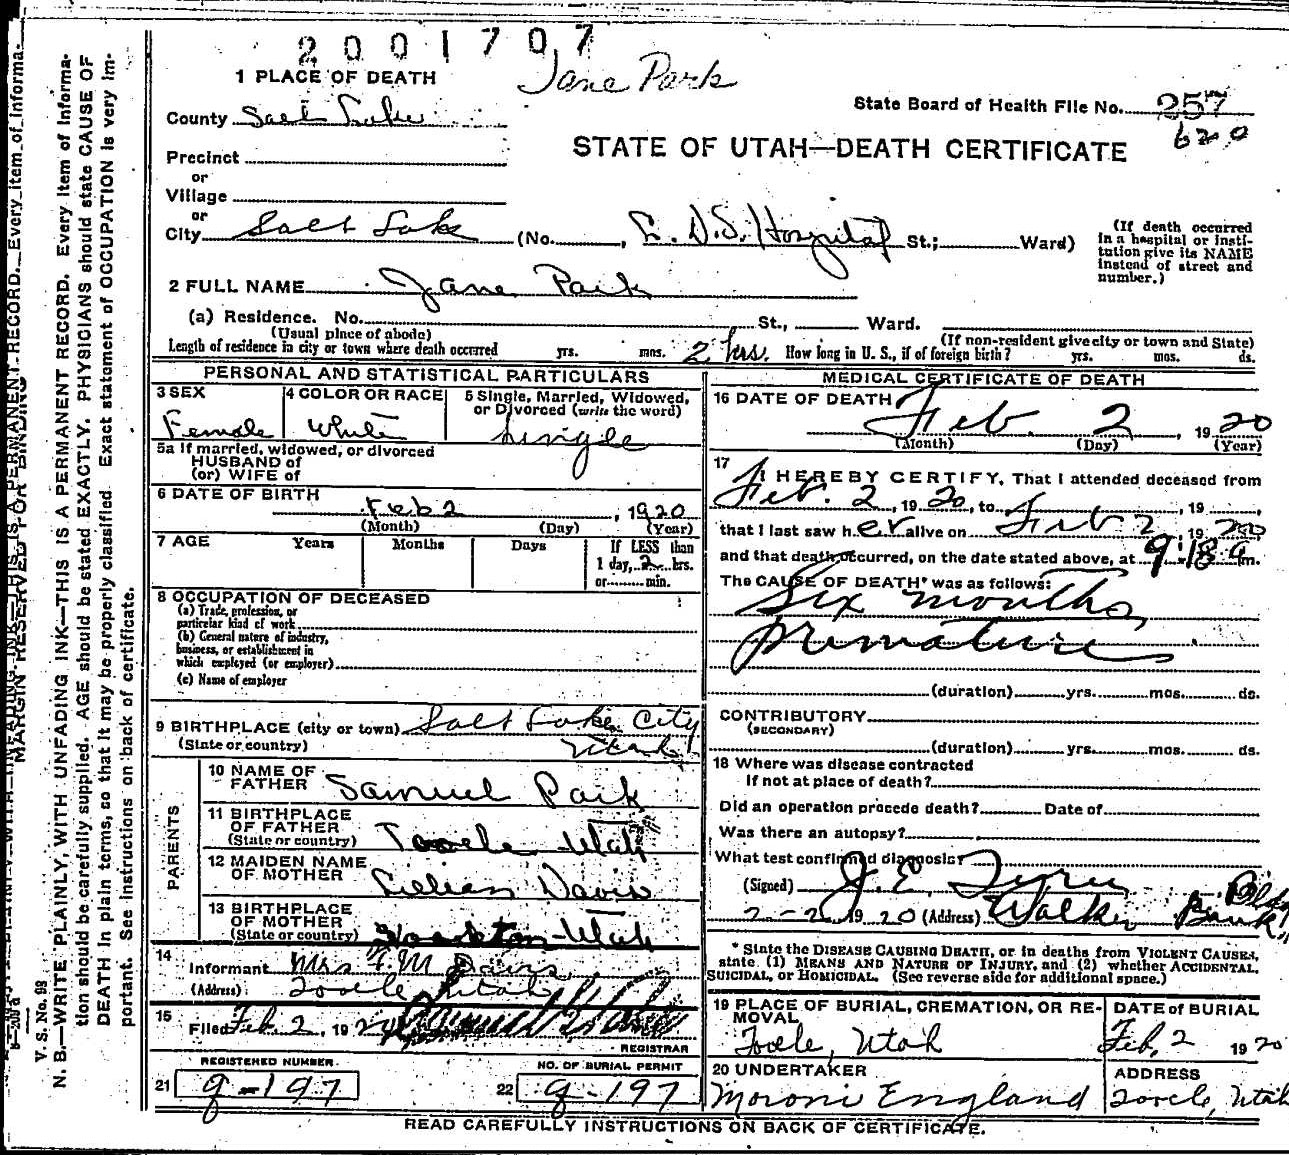 2001707
Jane Park
1 PLACE OF DEATH
State Board of Health File No. 257
620
County Salt Lake
STATE OF UTAH—DEATH CERTIFICATE
Precinct
or
Village
or
City Salt Lake (No. , L. D. S. Hospital St.; Ward)
(If death occurred
in a hospital or insti-
tution give its NAME
instead of street and
number.)
2 FULL NAME Jane Park
(a) Residence. No. St., Ward.
(Usual place of abode) (If non-resident give city or town and State)
Length of residence in city or town where death occurred yrs. mos. 2 hrs. How long in U. S., if of foreign birth? yrs. mos. ds.
PERSONAL AND STATISTICAL PARTICULARS
3 SEX
Female
4 COLOR OR RACE
White
5 Single, Married, Widowed,
or Divorced (write the word)
Single
5a If married, widowed, or divorced
HUSBAND of
(or) WIFE of
6 DATE OF BIRTH
Feb 2, 1920
(Month) (Day) (Year)
7 AGE Years Months Days If LESS than
1 day, 2 hrs.
or min.
8 OCCUPATION OF DECEASED
(a) Trade, profession, or
particular kind of work
(b) General nature of industry,
business, or establishment in
which employed (or employer)
(c) Name of employer
9 BIRTHPLACE (city or town) Salt Lake City
(State or country) Utah
PARENTS
10 NAME OF
FATHER Samuel Park
11 BIRTHPLACE
OF FATHER
(State or country) Tooele Utah
12 MAIDEN NAME
OF MOTHER Lillian Davis
13 BIRTHPLACE
OF MOTHER
(State or country) Stockton Utah
14
Informant Mrs F. M Davis
(Address) Tooele Utah
15
Filed Feb 2, 192
REGISTRAR
REGISTERED NUMBER
21 g-197
NO. OF BURIAL PERMIT
22 g-197
MEDICAL CERTIFICATE OF DEATH
16 DATE OF DEATH
Feb. 2, 1920
(Month) (Day) (Year)
17
I HEREBY CERTIFY, That I attended deceased from
Feb. 2, 1920, to , 19 ,
that I last saw her alive on Feb 2, 1920
and that death occurred, on the date stated above, at 9:18 a m.
The CAUSE OF DEATH* was as follows:
Six months
premature
(duration) yrs. mos. ds.
CONTRIBUTORY
(SECONDARY)
(duration) yrs. mos. ds.
18 Where was disease contracted
If not at place of death?
Did an operation precede death? Date of
Was there an autopsy?
What test confirmed diagnosis?
(Signed) J. E.
2-2 1920 (Address) Walker Bank Bldg
* State the DISEASE CAUSING DEATH, or in deaths from VIOLENT CAUSES,
state (1) MEANS AND NATURE OF INJURY, and (2) whether ACCIDENTAL,
SUICIDAL, or HOMICIDAL. (See reverse side for additional space.)
19 PLACE OF BURIAL, CREMATION, OR RE-
MOVAL
Tooele, Utah
DATE of BURIAL
Feb, 2 1920
20 UNDERTAKER
Moroni England
ADDRESS
Tooele, Utah
READ CAREFULLY INSTRUCTIONS ON BACK OF CERTIFICATE.
MARGIN RESERVED FOR BINDING
V. S. No. 98
N. B.—WRITE PLAINLY, WITH UNFADING INK—THIS IS A PERMANENT RECORD. Every item of informa-
tion should be carefully supplied. AGE should be stated EXACTLY. PHYSICIANS should state CAUSE OF
DEATH in plain terms, so that it may be properly classified. Exact statement of OCCUPATION is very im-
portant. See instructions on back of certificate.